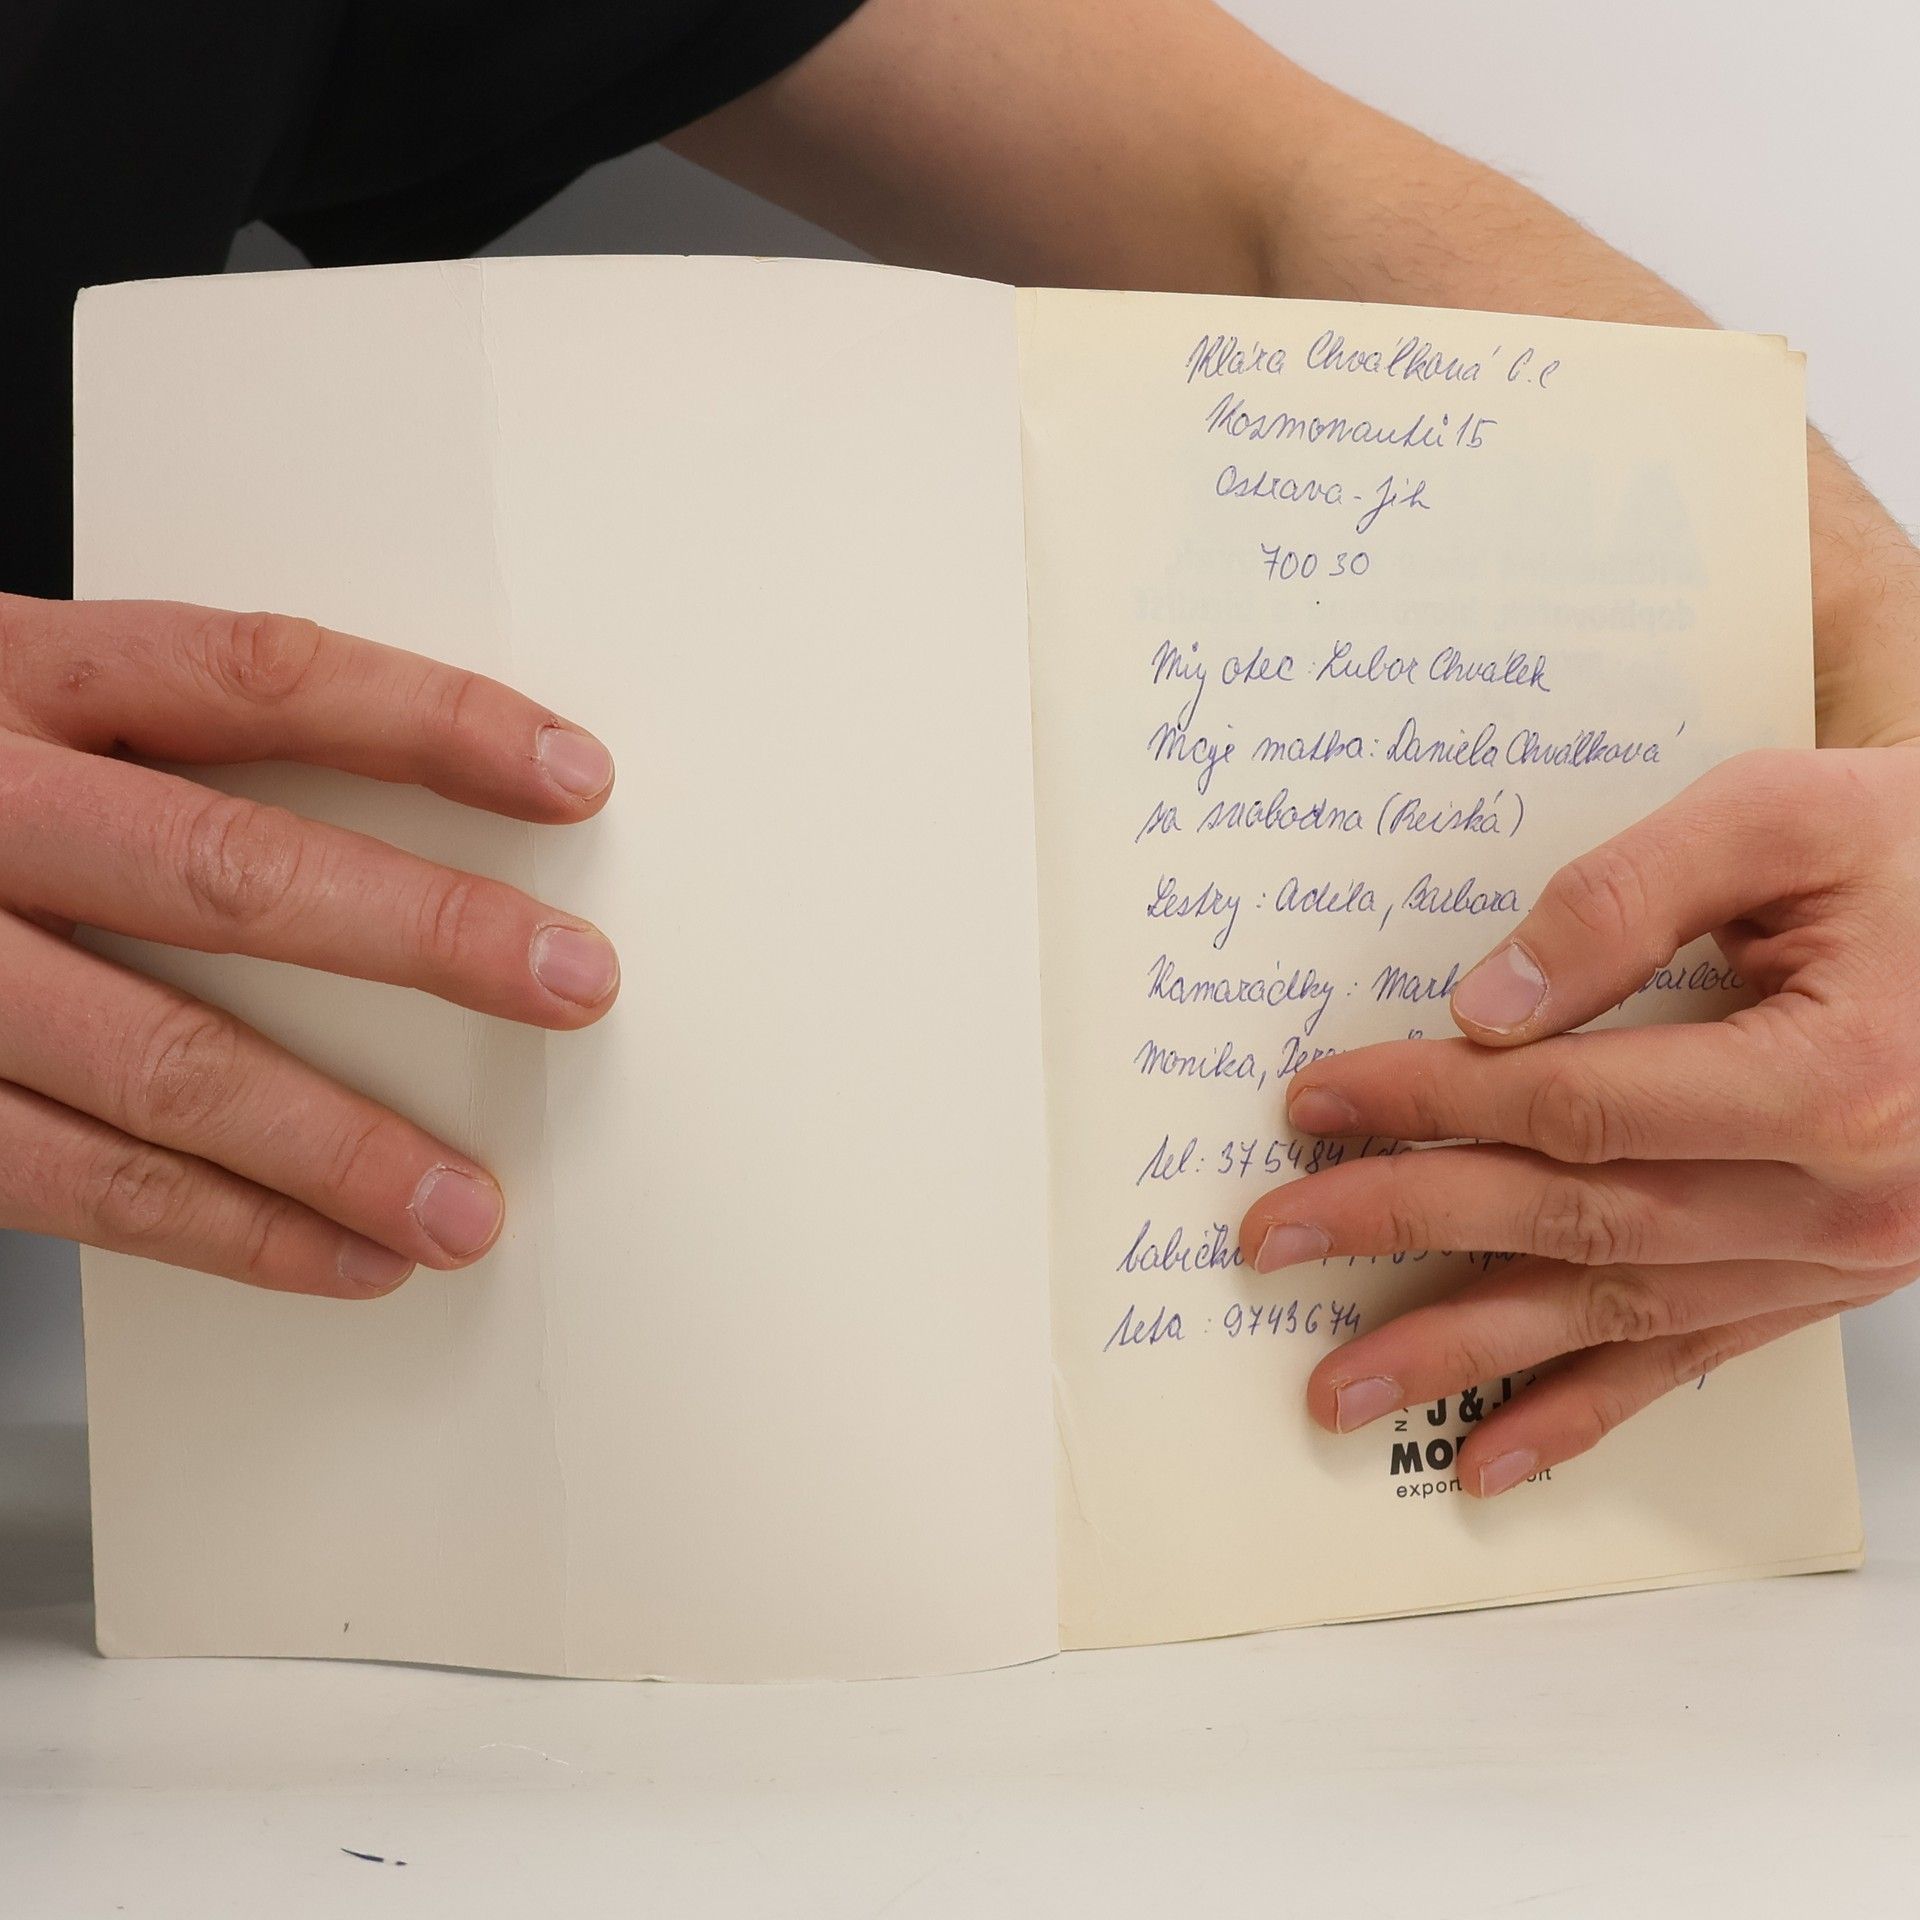 Klára Chválková 6.C
Kosmonautů 15
Ostrava-Jih
700 30
Můj otec: Lubor Chválek
Moje matka: Daniela Chválková
za svobodna (Reiská)
Sestry: Adéla, Barbora
Kamarádky:
Monika,
tel: 375484
teta: 9743674
J &
export